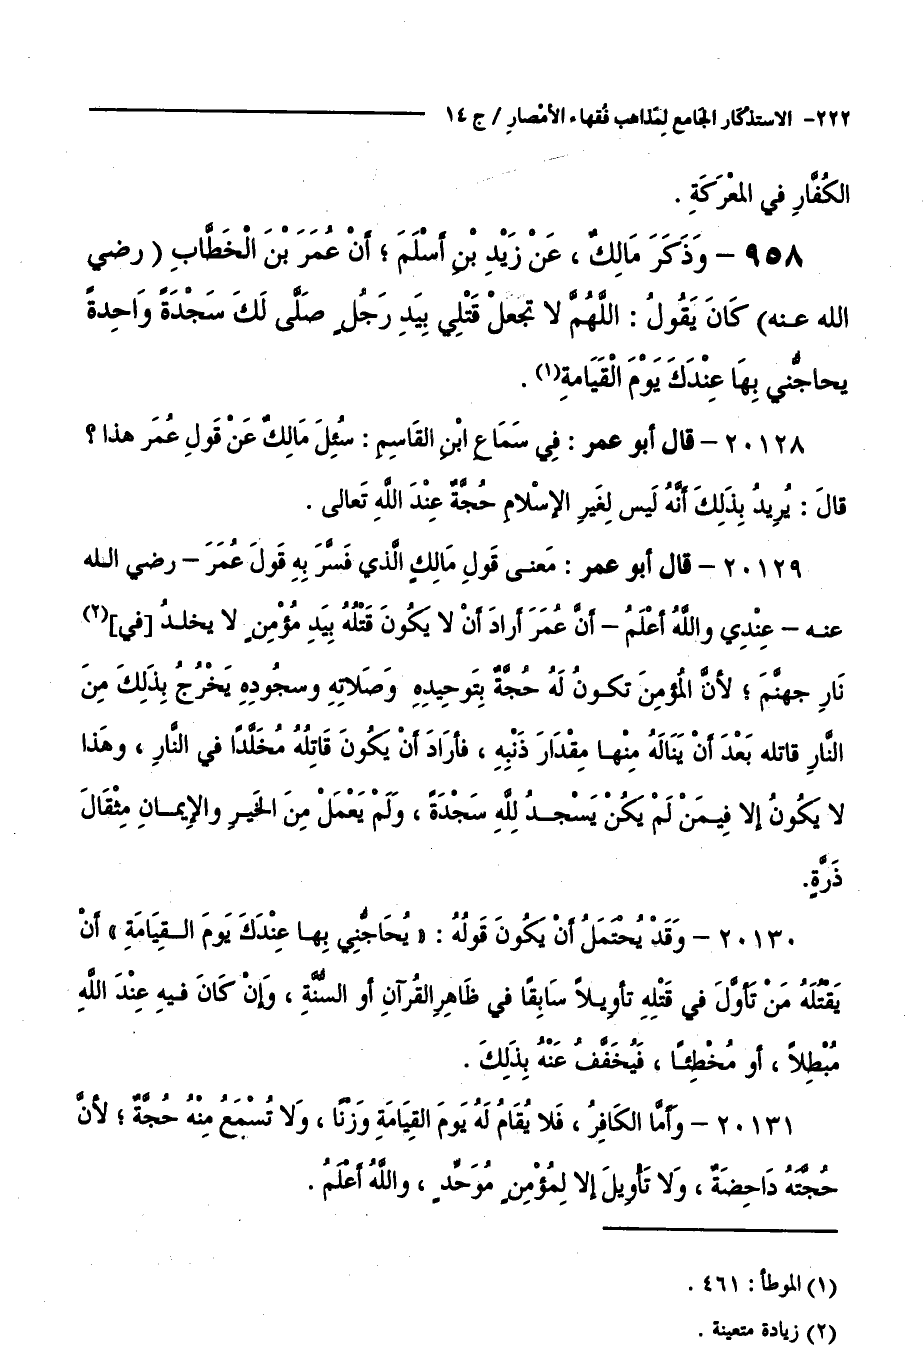 ٢٢٢- الاستذكار الجامع لمذاهب فقهاء الأمْصارِ / ج ١٤
الكُفَّارِ في المعْرَكَةِ .
٩٥٨ – وَذَكَرَ مَالِكٌ ، عَنْ زَيْدِ بْنِ أَسْلَمَ ؛ أَنْ عُمَرَ بْنَ الْخَطَّابِ ( رضي
الله عـنه) كَانَ يَقُولُ : اللَّهُمَّ لا تَجعَلْ قَتْلِي بِيَدِ رَجُلٍ صَلَّى لَكَ سَجْدَةً وَاحِدةً
يحاجُّني بِهَا عِنْدَكَ يَوْمَ الْقَيَامةِ(١) .
٢٠١٢٨ – قال أبو عمر : فِي سَمَاعِ ابْنِ القَاسِمِ : سُئِلَ مَالِكٌ عَنْ قَولِ عُمَرَ هذا ؟
قالَ : يُرِيدُ بِذَلِكَ أَنَّهُ لَيس لِغَيرِ الإِسْلامِ حُجَّةٌ عِنْدَ اللَّهِ تَعالى .
٢٠١٢٩ – قال أبو عمر : مَعنـى قَولِ مَالِكٍ الَّذي فَسَّرَ بِهِ قَولَ عُمَرَ – رضي الـله
عنـه – عِنْدِي واللَّهُ أَعْلَمُ – أنَّ عُمَرَ أرادَ أنْ لا يَكُونَ قَتْلُهُ بِيَدِ مُؤْمِنٍ لا يخلـدُ [في](٢)
نَارِ جهنَّمَ ؛ لأنَّ المُؤمِنَ تكـونُ لَهُ حُجَّةٌ بِتَوحِيدِهِ وَصَلاتِهِ وسجُودِهِ يَخْرُجُ بِذَلِكَ مِنَ
النَّارِ قاتله بَعْدَ أَنْ يَنَالَهُ مِنْهـا مِقْدَارَ ذَنْبِهِ ، فأَرَادَ أنْ يَكُونَ قَاتِلُهُ مُخَلَّدًا في النَّارِ ، وهَذا
لا يَكُونُ إلا فِيـمَنْ لَمْ يَكُنْ يَسْجـدُ لِلَّهِ سَجْدَةً ، وَلَمْ يَعْمَلْ مِنَ الخَيرِ والإِيمـانِ مِثْقَالَ
ذَرَّةٍ.
٢٠١٣٠ – وَقَدْ يُحْتَمَلُ أَنْ يَكُونَ قَولُهُ : « يُحَاجُّنِي بِهـا عِنْدَكَ يَومَ الـقِيَامَةِ » أنْ
يَقْتُلَهُ مَنْ تَأوَّلَ في قَتْلِهِ تأويـلاً سَابِقًا في ظَاهِرِالقُرآنِ أو السُّنَّةِ ، وَإنْ كَانَ فيـهِ عِنْدَ اللَّهِ
مُبْطِلاً ، أو مُخْطِئًـا ، فَيُخَفَّفُ عَنْهُ بِذَلِكَ .
٢٠١٣١ – وَأمَّا الكَافِرُ ، فَلا يُقَامُ لَهُ يَومَ القِيَامَةِ وَزْنًا ، وَلا تُسْمَعُ مِنْهُ حُجَّةٌ ؛ لأنَّ
حُجَّتَهُ دَاحِضَةٌ ، وَلا تَأوِيلَ إلا لِمُؤْمِنٍ مُوَحِّدٍ ، واللَّهُ أعْلَمُ .
(١) الموطأ : ٤٦١ .
(٢) زيادة متعينة .